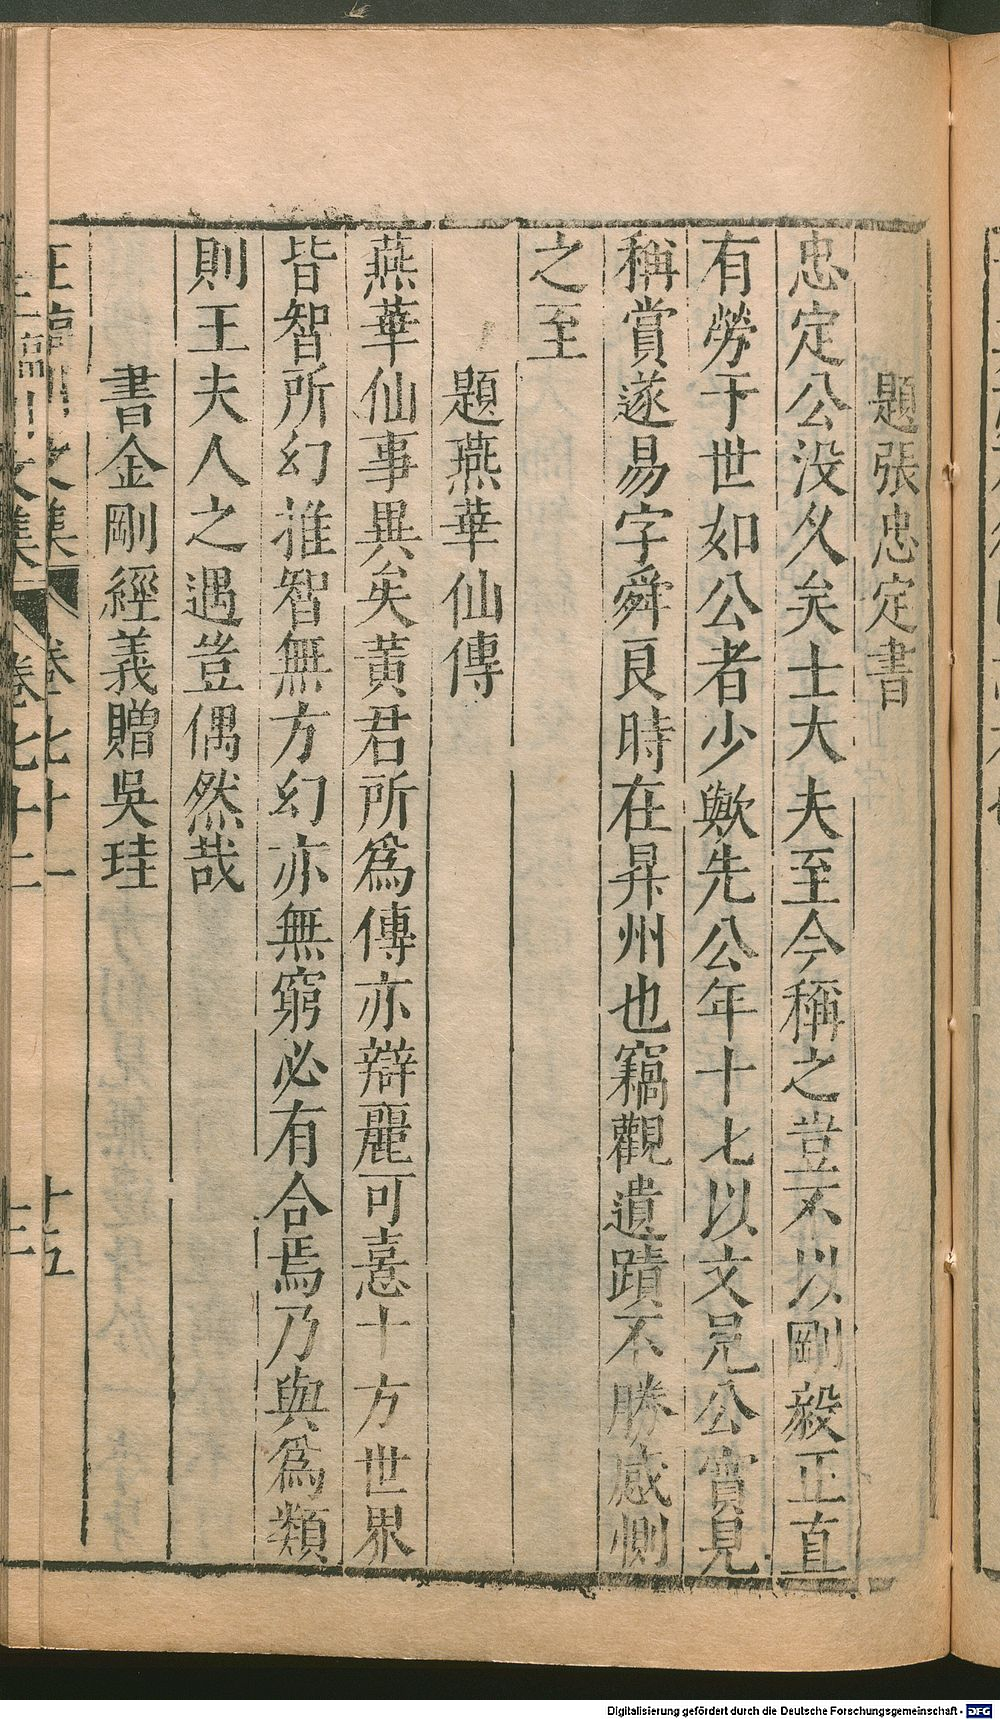 題張忠定書
忠定公没久矣士大夫至今稱之豈不以剛毅正直
有勞于世如公者少歟先公年十七以文見公實見
稱賞遂易字舜良時在昇州也竊觀遺蹟不勝感惻
之至
題燕華仙傳
燕華仙事異矣黃君所為傳亦辯麗可憙十方世界
皆智所幻推智無方幻亦無窮必有合焉乃與為類
則王夫人之遇豈偶然哉
書金剛經義贈吳珪
卷七十一
十五
文集
卷七十二
Digitalisierung gefördert durch die Deutsche Forschungsgemeinschaft - DFG